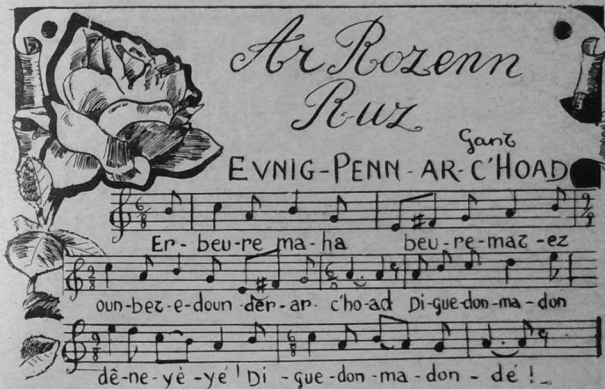 Ar Rozenn
Ruz
Gant
EVNIG-PENN-AR-C'HOAD
Er-beu-re ma-ha beu-re-mat-ez
oun-bet-e-doun-der-ar-c'ho-ad Di-gue-don-ma-don
dê-ne-yè-yé! Di-gue-don-ma-don-dé!